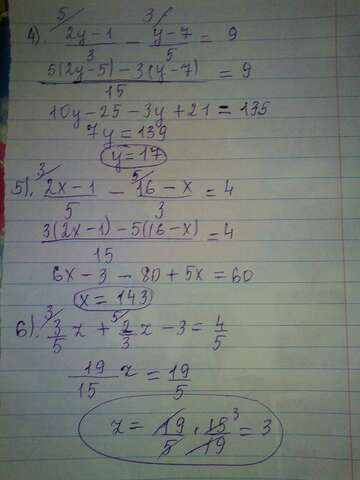 4). 5/ (2y-1)/3 - 3/ (y-7)/5 = 9
(5(2y-5)-3(y-7))/15 = 9
10y-25-3y+21=135
7y=139
y=17
5). 3/ (2x-1)/5 - 5/ (16-x)/3 = 4
(3(2x-1)-5(16-x))/15 = 4
6x-3-80+5x=60
x=143
6). 3/ 3/5 z + 5/ 2/3 z - 3 = 4/5
19/15 z = 19/5
z = 19/5 · 15/19 ³ = 3